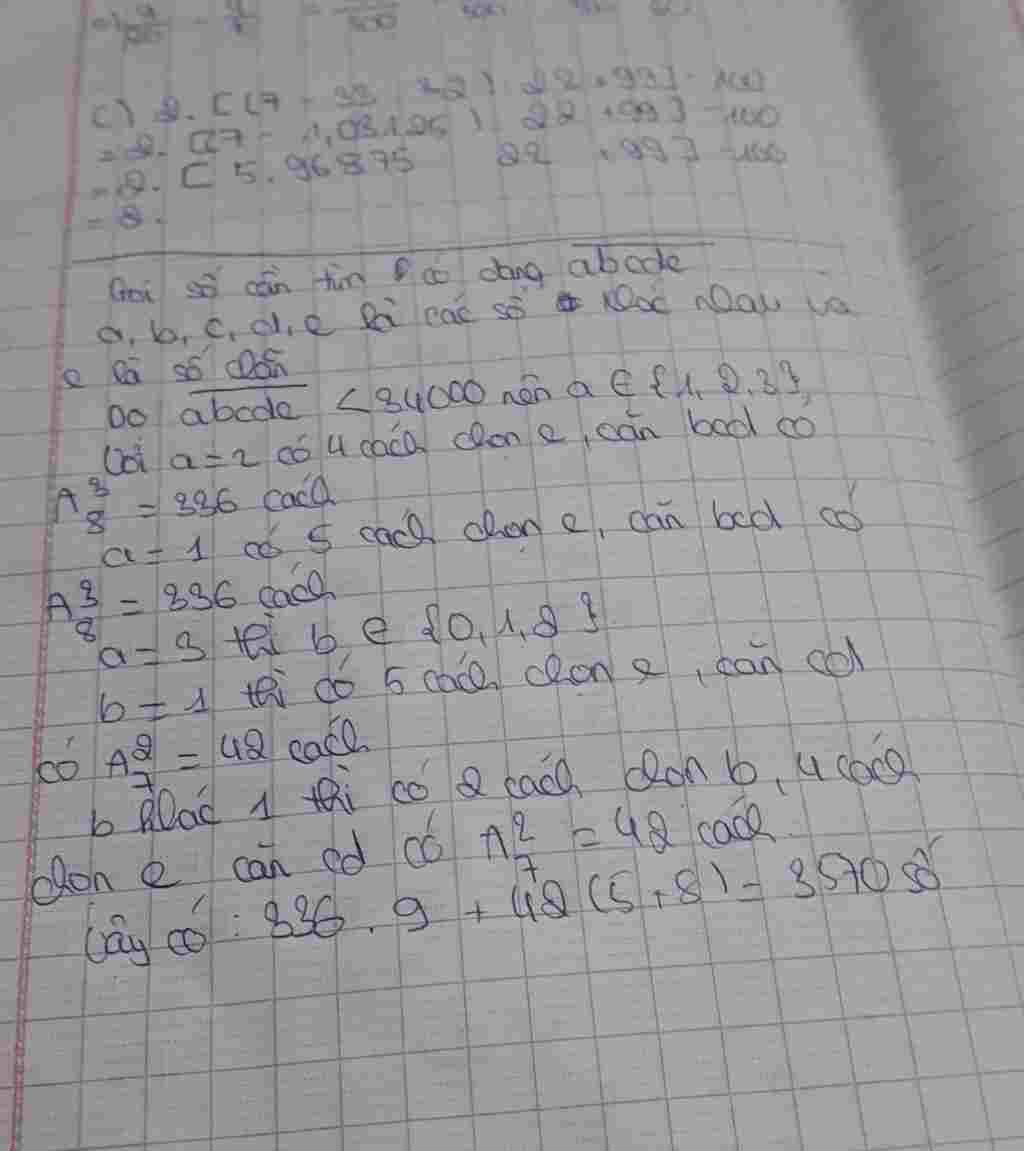 c) 2. [(7 - 33 : 32) : 22 + 99] - 100
= 2. [(7 - 1,03125) : 22 + 99] - 100
= 2. [ 5,96875 : 22 + 99] - 100
= 8.
Gọi số cần tìm có dạng abcde
a, b, c, d, e là các số khác nhau và
e là số chẵn
Do abcde < 34000 nên a ∈ {1, 2, 3},
Với a = 2 có 4 cách chọn e, còn bcd có
A 3 8 = 336 cách
a = 1 có 5 cách chọn e, còn bcd có
A 3 8 = 336 cách
a = 3 thì b ∈ {0, 1, 2}
b = 1 thì có 5 cách chọn e, còn cd
có A 2 7 = 42 cách
b khác 1 thì có 2 cách chọn b, 4 cách
chọn e còn cd có A 2 7 = 42 cách.
Vậy có : 336 . 9 + 42 (5 + 8) = 3570 số